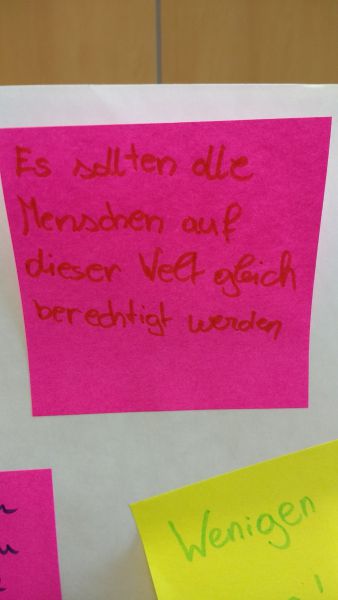 Es sollten alle
Menschen auf
dieser Welt gleich
berechtigt werden
Wenigen